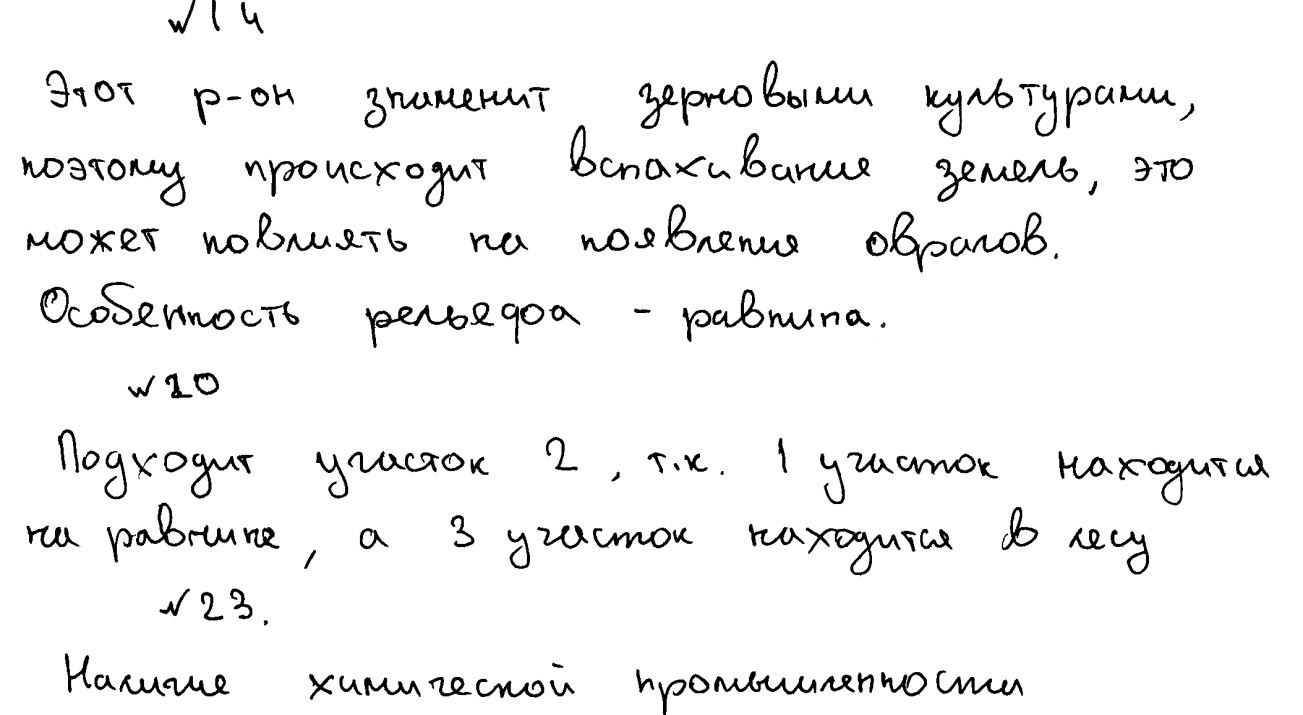 №14
Этот р-он знаменит зерновыми культурами,
поэтому происходит вспахивание земель, это
может повлиять на появления оврагов.
Особенность рельефа - равнина.
№20
Подходит участок 2, т.к. 1 участок находится
на равнине, а 3 участок находится в лесу
№23.
Наличие химической промышленности